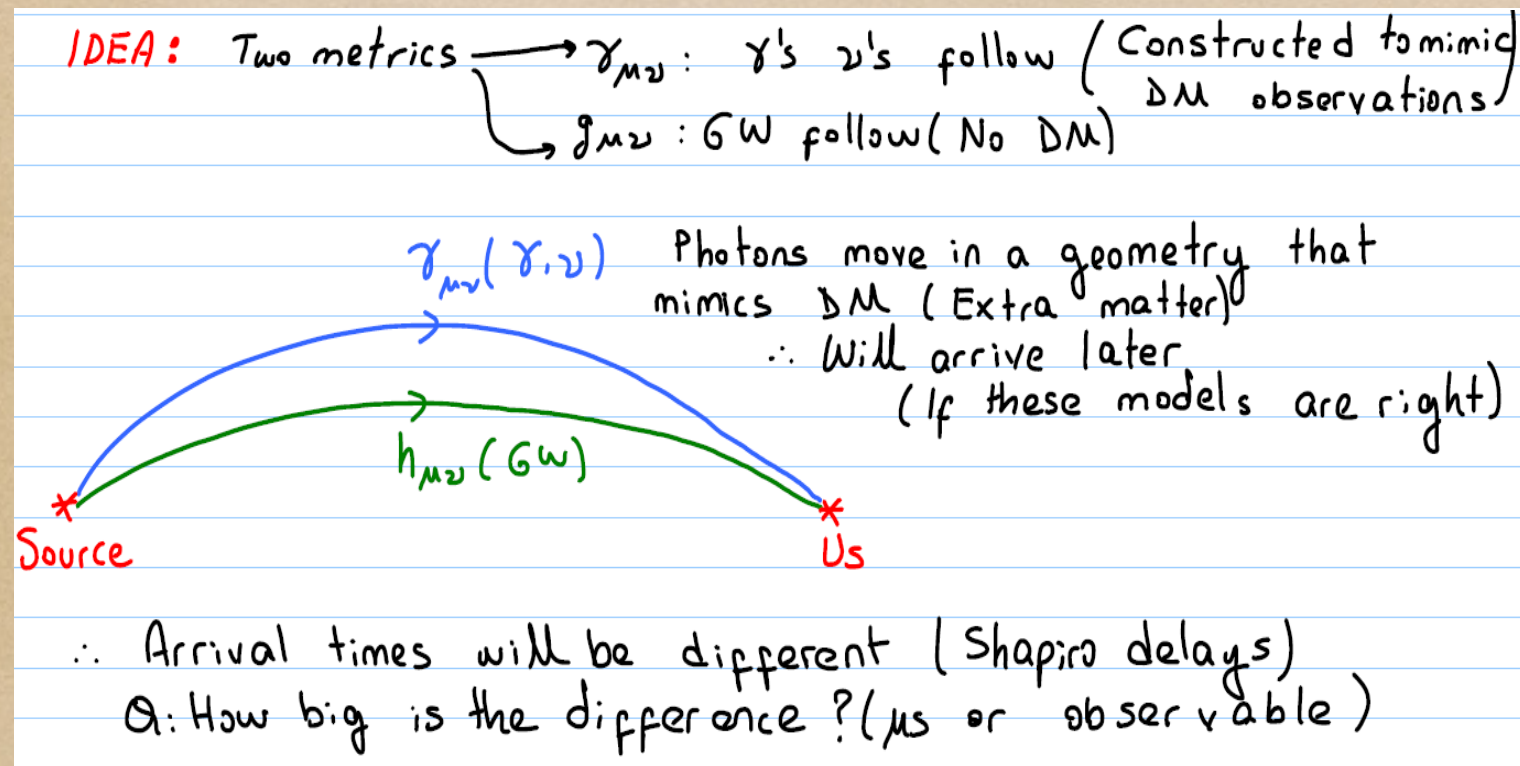 IDEA: Two metrics → γ̃μν: γ's ν's follow (Constructed to mimic
DM observations)
↳ gμν : GW follow (No DM)
γ̃μν (γ,ν) Photons move in a geometry that
mimics DM (Extra matter)
∴ Will arrive later
(If these models are right)
hμν (GW)
Source
Us
∴ Arrival times will be different (Shapiro delays)
Q: How big is the difference? (μs or observable)